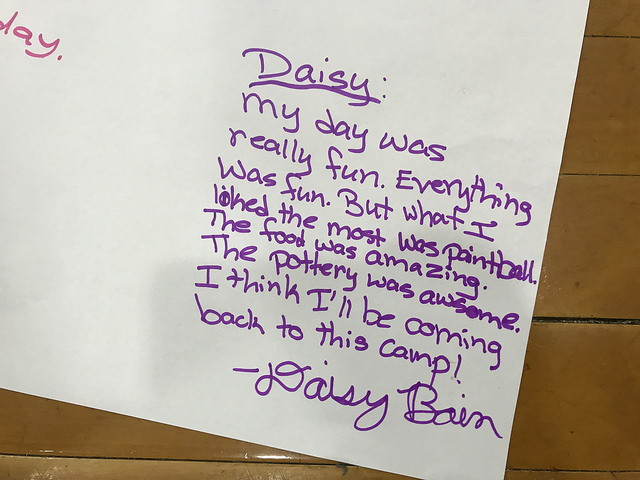 day.
Daisy:
My day was
really fun. Everything
was fun. But what I
liked the most was paintball.
The food was amazing.
The pottery was awsome.
I think I'll be coming
back to this camp!
-Daisy Bain